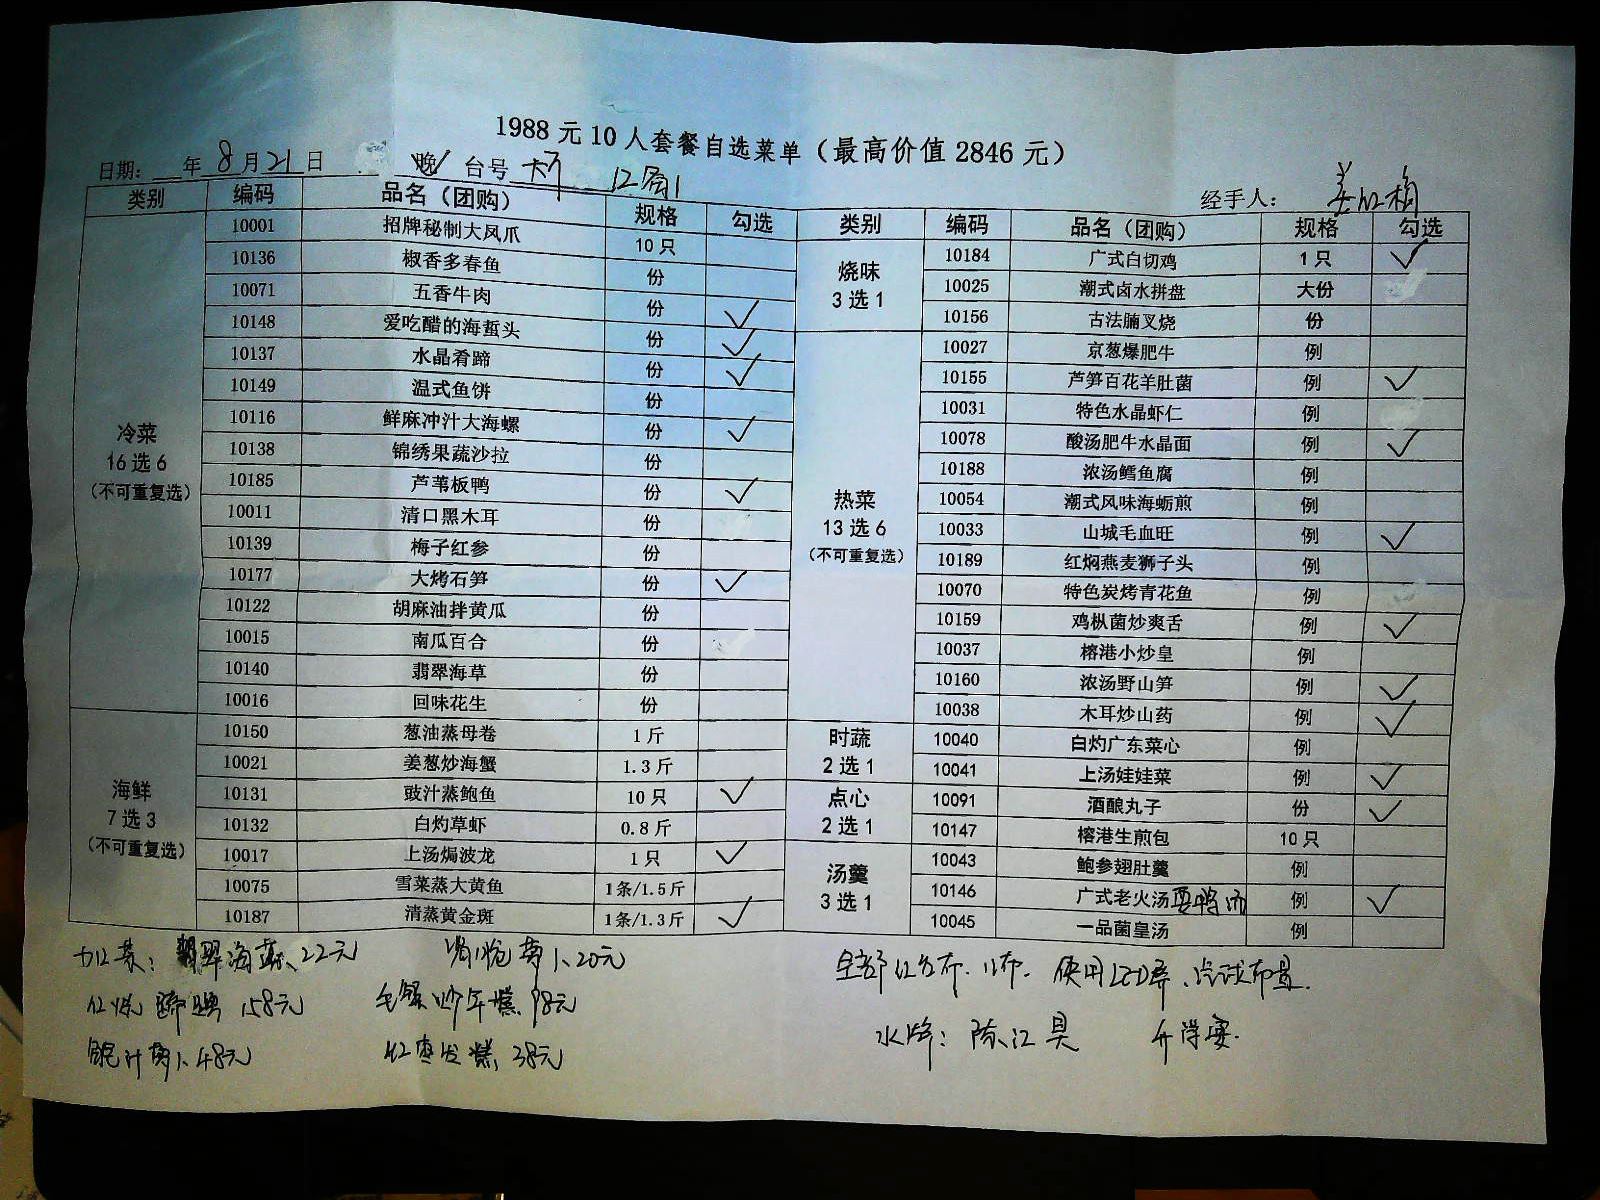 1988 元 10 人套餐自选菜单（最高价值 2846 元）
日期: 年 8 月 21 日 晚 台号 大厅 12席
经手人:
类别 编码 品名（团购） 规格 勾选
冷菜
16 选 6
（不可重复选）
10001 招牌秘制大凤爪 10 只
10136 椒香多春鱼 份
10071 五香牛肉 份 ✓
10148 爱吃醋的海蜇头 份 ✓
10137 水晶肴蹄 份 ✓
10149 温式鱼饼 份
10116 鲜麻冲汁大海螺 份 ✓
10138 锦绣果蔬沙拉 份
10185 芦苇板鸭 份 ✓
10011 清口黑木耳 份
10139 梅子红参 份
10177 大烤石笋 份 ✓
10122 胡麻油拌黄瓜 份
10015 南瓜百合 份
10140 翡翠海草 份
10016 回味花生 份
海鲜
7 选 3
（不可重复选）
10150 葱油蒸母卷 1 斤
10021 姜葱炒海蟹 1.3 斤
10131 豉汁蒸鲍鱼 10 只 ✓
10132 白灼草虾 0.8 斤
10017 上汤焗波龙 1 只 ✓
10075 雪菜蒸大黄鱼 1条/1.5 斤
10187 清蒸黄金斑 1条/1.3 斤 ✓
类别 编码 品名（团购） 规格 勾选
烧味
3 选 1
10184 广式白切鸡 1 只 ✓
10025 潮式卤水拼盘 大份
10156 古法腩叉烧 份
热菜
13 选 6
（不可重复选）
10027 京葱爆肥牛 例
10155 芦笋百花羊肚菌 例 ✓
10031 特色水晶虾仁 例
10078 酸汤肥牛水晶面 例 ✓
10188 浓汤鳕鱼腐 例
10054 潮式风味海蛎煎 例
10033 山城毛血旺 例 ✓
10189 红焖燕麦狮子头 例
10070 特色炭烤青花鱼 例
10159 鸡枞菌炒爽舌 例 ✓
10037 榕港小炒皇 例
10160 浓汤野山笋 例 ✓
10038 木耳炒山药 例 ✓
时蔬
2 选 1
10040 白灼广东菜心 例
10041 上汤娃娃菜 例 ✓
点心
2 选 1
10091 酒酿丸子 份 ✓
10147 榕港生煎包 10 只
汤羹
3 选 1
10043 鲍参翅肚羹 例
10146 广式老火汤 要鸭汤 例 ✓
10045 一品菌皇汤 例
加菜: 翡翠海草、22元
20元
红烧蹄膀 158元
毛蟹炒年糕 98元
鲍汁 48元
红枣发糕 38元
全部红台布. 使用LED屏、
水牌: 陈江昊 升学宴.